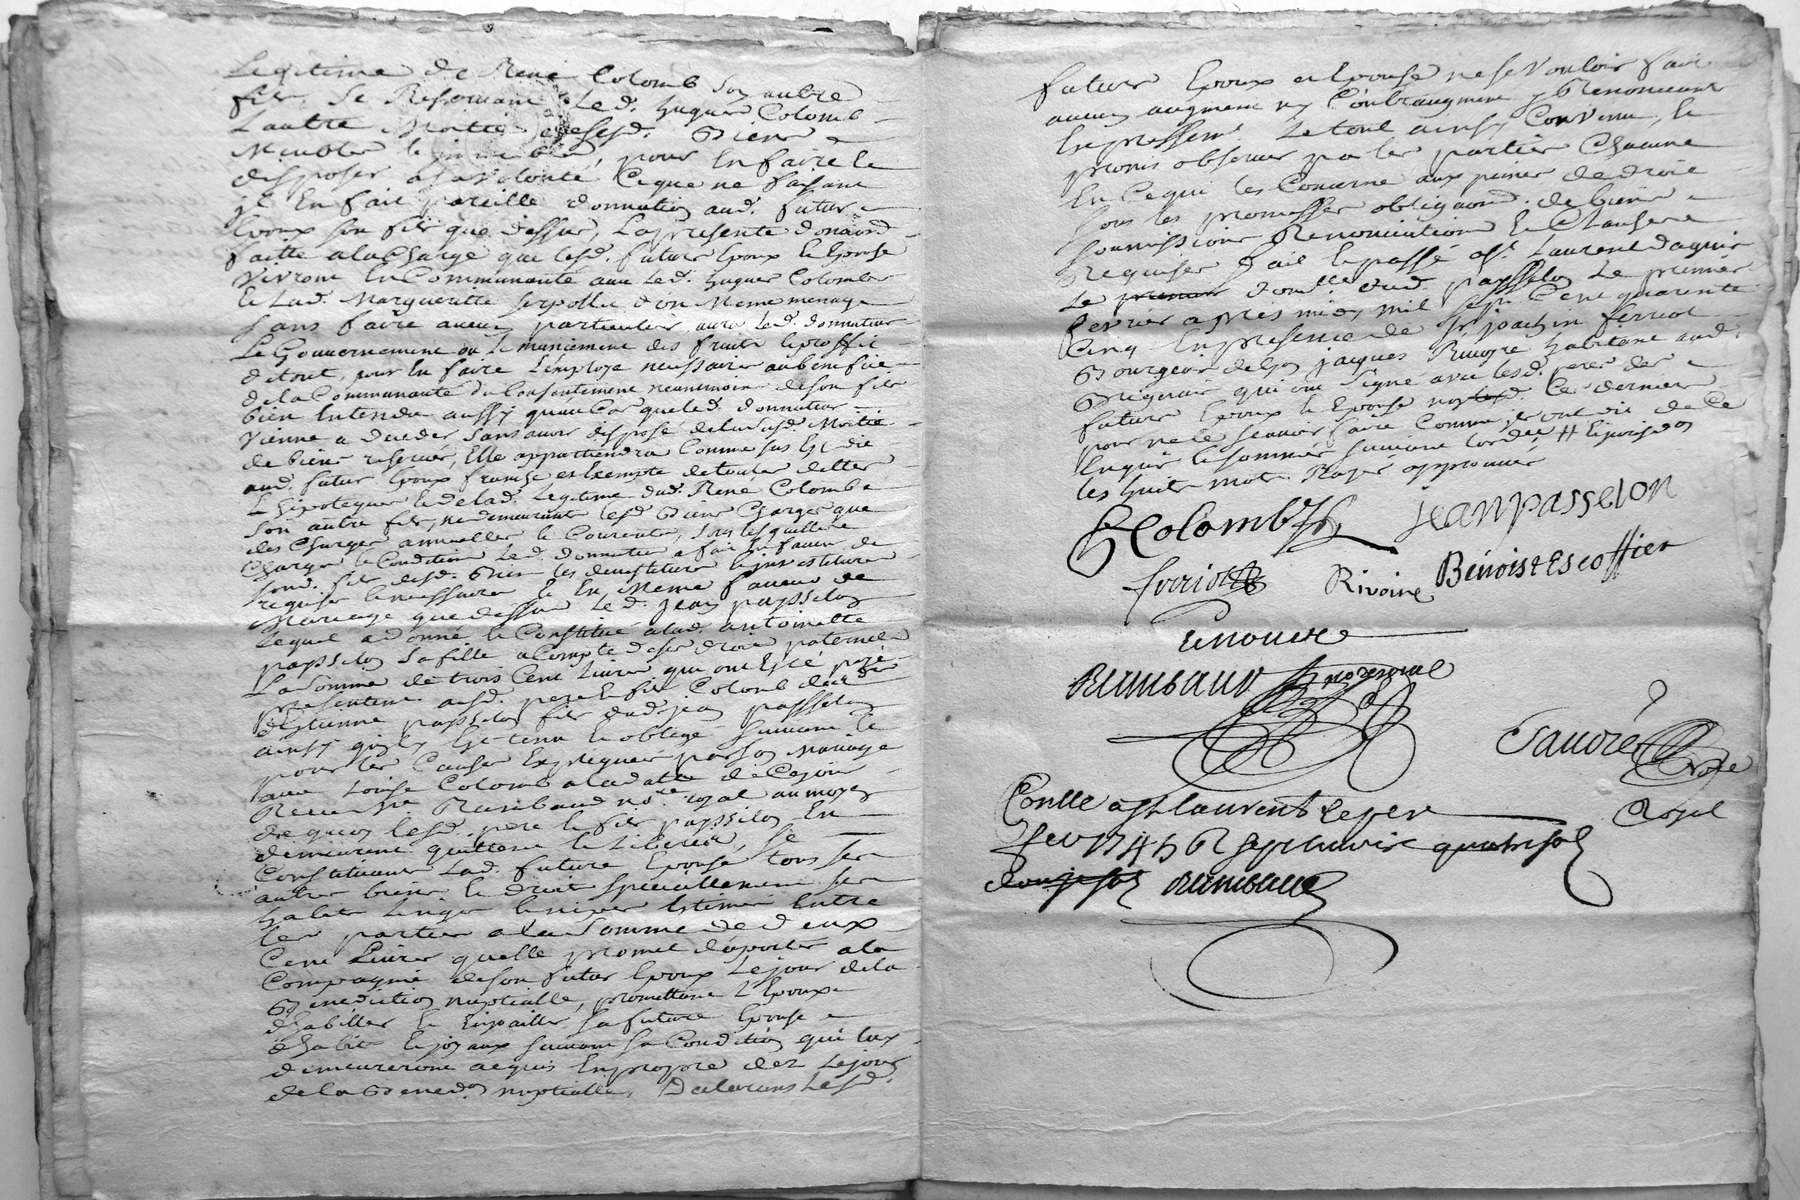 Legitime de René Colomb son autre
fils, se Reservant led. hugues Colomb
Lautre Moitié desesd. Biens
Meubles le immeubles, pour En faire le
disposer asavolonté, Ceque ne faisant
jl En fait pareille donnation aud. futur
Epoux son fils que dessus, La presente donnaon
faitte ala Charge que lesd. futurs Epoux le Epouse
Vivront En Communauté avec led. hugues Colomb
le Lad. Margueritte serpollet dun Meme menage
sans faire aucun particulier, aura led. donnateur
Le Gouvernement ou le maniement des fruits le proffit
detout, pour En faire Lemploye necessaire aubenefice
dela Communauté du Consentement neanmoins deson fils
bien Entendu aussy quau Cas queled. donnateur
Vienne a deceder sans avoir disposé delad. Moitié
de biens reservés, Elle appartiendra Comme sus Est dit
aud. futur Epoux franche et Exempte detoutes dettes
Lhipoteques le delad. Legitime dud. René Colomb
son autre fils, ne demeurant lesd. Biens Chargés que
des Charges annuelles le Courantes, sous lesquelles
Charges le Condition led. donnateur a fait En faveur de
sond. fils desd. Biens les devestiture le investiture
requises le necessaires le En Meme faveur de
Mariage que dessus led. jean passelon
lequel a donné le Constitué alad. antoinette
passelon sa fille a Compte deses droits paternels
La somme de trois Cent Livres qui ont Esté payé
presentement ausd. pere le fils Colomb
destienne passelon fils dud. jean passelon
ainsy quil y Est tenu le obligé suivant le
pour les Causes Expliquées par son Mariage
avec Louise Colomb aladatte de Cejour
Receu Me Rambaud nore royal aumoyen
de quoy lesd. pere le fils passelon En
demeurent quittes le Liberés, se
Constituant Lad. future Epouse tous ses
autres biens le droits specialement ses
habits Linges le nipes Estimés Entre
les parties ala somme de deux
Cent Livres quelle promet daporter ala
Compagnie deson futur Epoux Lejour dela
Benediction nuptialle, promettant L'Epoux
dhabiller le Enjoailler sa future Epouse
dhabits le joyaux suivant sa Condition qui luy
demeureront acquis En propre dez Lejour
dela Benedon nuptialle, Declarans Lesd.
futurs Epoux et Epouse nese Vouloir faire
aucun augment ny Contraugment y Renonceant
Expressement Letout ainsy Convenu, le
promis observer par les parties Chacune
En Cequi les Concerne aux peines de droit
sous les promesses obligaond. de biens
soumissions Renonciations le Clauses
Requises fait le passé ast Laurent dagnis
Le premier domlle dud. passelon Le premier
fevrier apres midy mil sept Cent quarente
Cinq En presence de sr. joachin ferriot
Bourgeois de Lyon jacques Rivoyre habitant aud.
qui ont signé avec lesd. peres des
futurs Epoux le Epouse non lesd. Ces derniers
pour ne le scavoir faire Comme jls ont dit de Ce
Enquis le sommés suivant Lordce
les huit mots Rayés approuvés
h Colomb
jean passelon
ferriot
Rivoire
Bénoist Escoffier
Rambaud no royal
royal
Conlle a st Laurent le per
fev 1745 R sept livres quatre sols
douze sols Rambaud